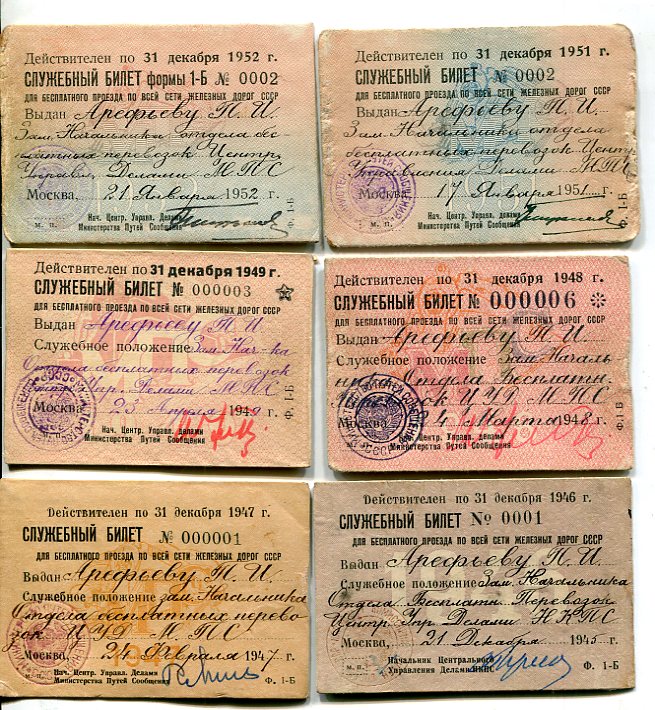 Действителен по 31 декабря 1952 г.
СЛУЖЕБНЫЙ БИЛЕТ формы 1-Б № 0002
ДЛЯ БЕСПЛАТНОГО ПРОЕЗДА ПО ВСЕЙ СЕТИ ЖЕЛЕЗНЫХ ДОРОГ СССР
Выдан Арефьеву П. И.
Зам. Начальника отдела бес-
платных перевозок Центр.
Управл. Делами М П С
Москва, 21 Января 1952 г.
Нач. Центр. Управл. Делами
Министерства Путей Сообщения
М. П.
Ф. 1-Б
Действителен по 31 декабря 1951 г.
СЛУЖЕБНЫЙ БИЛЕТ № 0002
ДЛЯ БЕСПЛАТНОГО ПРОЕЗДА ПО ВСЕЙ СЕТИ ЖЕЛЕЗНЫХ ДОРОГ СССР
Выдан Арефьеву П. И.
Зам. Начальника отдела
бесплатных перевозок Центр
Управления Делами МПС
Москва, 17 Января 1951 г.
Нач. Центр. Управл. делами
Министерства Путей Сообщения
М. П.
Ф. 1-Б
Действителен по 31 декабря 1949 г.
СЛУЖЕБНЫЙ БИЛЕТ № 000003
ДЛЯ БЕСПЛАТНОГО ПРОЕЗДА ПО ВСЕЙ СЕТИ ЖЕЛЕЗНЫХ ДОРОГ СССР
Выдан Арефьеву П. И.
Служебное положение Зам. Нач-ка
Отдела бесплатных перевозок
Центр. Упр. Делами МПС
Москва 23 Апреля 1949 г.
Нач. Центр. Управл. делами
Министерства Путей Сообщения
Ф. 1-Б
Действителен по 31 декабря 1948 г.
СЛУЖЕБНЫЙ БИЛЕТ № 000006
ДЛЯ БЕСПЛАТНОГО ПРОЕЗДА ПО ВСЕЙ СЕТИ ЖЕЛЕЗНЫХ ДОРОГ СССР
Выдан Арефьеву П. И.
Служебное положение Зам. Началь
ника Отдела Бесплатн.
Перевозок ЦУД МПС
Москва 4 Марта 1948 г.
Нач. Центр. Управл. делами
Министерства Путей Сообщения
Ф. 1-Б
Действителен по 31 декабря 1947 г.
СЛУЖЕБНЫЙ БИЛЕТ № 000001
ДЛЯ БЕСПЛАТНОГО ПРОЕЗДА ПО ВСЕЙ СЕТИ ЖЕЛЕЗНЫХ ДОРОГ СССР
Выдан Арефьеву П. И.
Служебное положение зам. Начальника
Отдела бесплатных перево
зок ЦУД МПС
Москва, 24 Февраля 1947 г.
Нач. Центр. Управл. Делами
Министерства Путей Сообщения
М. П.
Ф. 1-Б
Действителен по 31 декабря 1946 г.
СЛУЖЕБНЫЙ БИЛЕТ № 0001
ДЛЯ БЕСПЛАТНОГО ПРОЕЗДА ПО ВСЕЙ СЕТИ ЖЕЛЕЗНЫХ ДОРОГ СССР
Выдан Арефьеву П. И.
Служебное положение Зам. Начальника
Отдела Бесплатн. Перевозок
Центр Упр Делами НКПС
Москва, 21 Декабря 1945 г.
Начальник Центрального
Управления Делами НКПС
М. П.
Ф. 1-Б